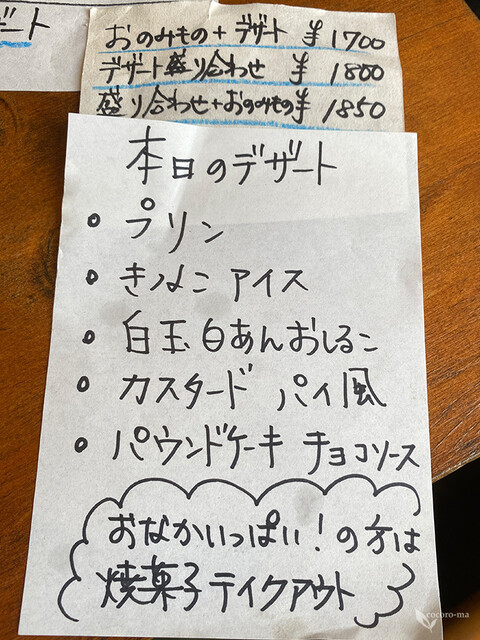 ザート
おのみもの+デザート ¥1700
デザート盛り合わせ ¥1800
盛り合わせ+おのみもの¥1850
本日のデザート
• プリン
• きなこアイス
• 白玉白あんおしるこ
• カスタード パイ風
• パウンドケーキ チョコソース
おなかいっぱい!の方は
焼菓子テイクアウト
cocoro-ma